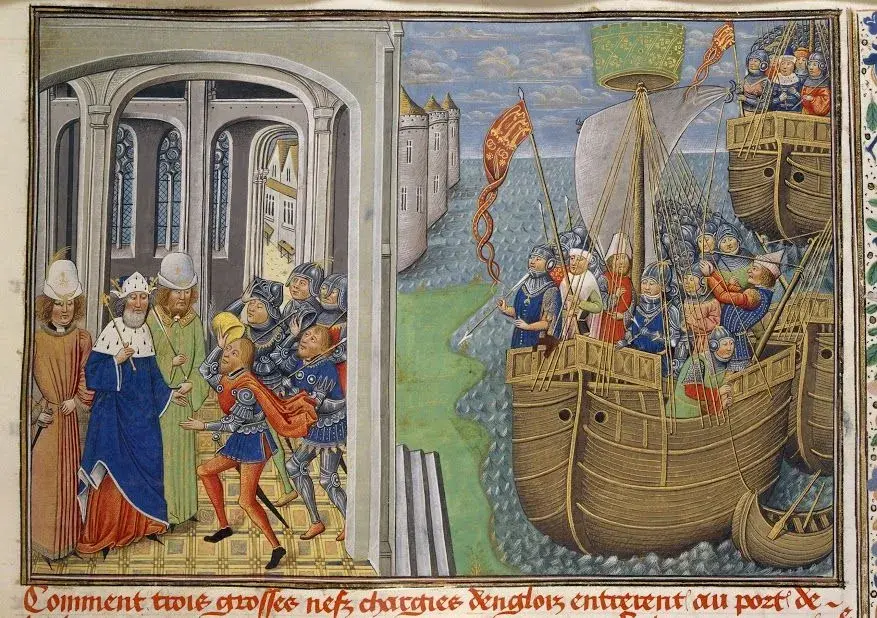 Comment trois grosses nefz chargies denglois entrerent au port de